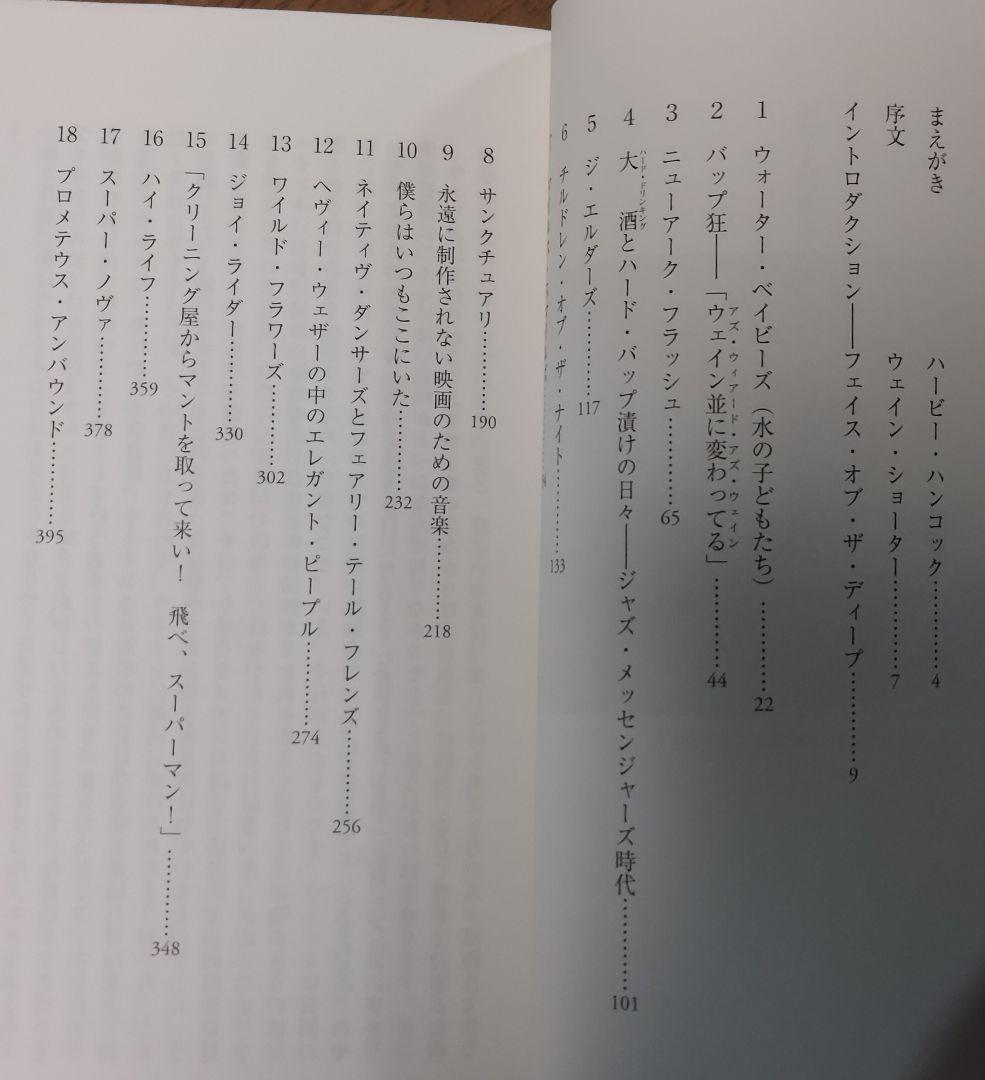 まえがき　ハービー・ハンコック…………4
序文　ウェイン・ショーター…………7
イントロダクション――フェイス・オブ・ザ・ディープ…………9
1　ウォーター・ベイビーズ（水の子どもたち）…………22
2　バップ狂――「ウェイン並に変わってる」…………44
アズ・ウィアード・アズ・ウェイン
3　ニューアーク・フラッシュ…………65
4　大酒とハード・バップ漬けの日々――ジャズ・メッセンジャーズ時代…………101
ハード・ドリンキング
5　ジ・エルダーズ…………117
6　チルドレン・オブ・ザ・ナイト…………133
8　サンクチュアリ…………190
9　永遠に制作されない映画のための音楽…………218
10　僕らはいつもここにいた…………232
11　ネイティヴ・ダンサーズとフェアリー・テール・フレンズ…………256
12　ヘヴィー・ウェザーの中のエレガント・ピープル…………274
13　ワイルド・フラワーズ…………302
14　ジョイ・ライダー…………330
15　「クリーニング屋からマントを取って来い！　飛べ、スーパーマン！」…………348
16　ハイ・ライフ…………359
17　スーパー・ノヴァ…………378
18　プロメテウス・アンバウンド…………395